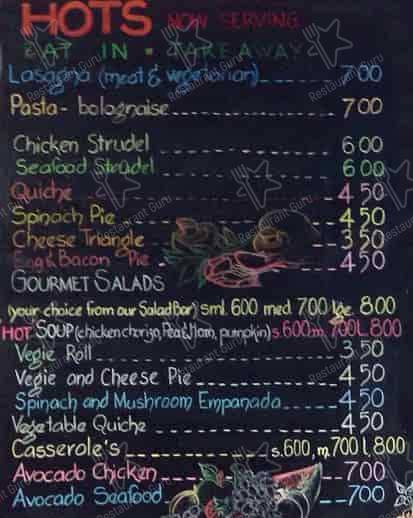 HOTS NOW SERVING
EAT IN • TAKEAWAY
Lasagna (meat & vegetarian) 7 00
Pasta - bolagnaise 7 00
Chicken Strudel 6 00
Seafood Strudel 6 00
Quiche 4 50
Spinach Pie 4 50
Cheese Triangle 3 50
Egg & Bacon Pie 4 50
GOURMET SALADS
(your choice from our Salad Bar) sml. 600 med. 700 lge. 800
HOT SOUP (chicken chorizo, Pea & Ham, pumpkin) s. 600 m. 700 l. 800
Vegie Roll 3 50
Vegie and Cheese Pie 4 50
Spinach and Mushroom Empanada 4 50
Vegetable Quiche 4 50
Casserole's s. 600, m. 700 l. 800
Avocado Chicken 7 00
Avocado Seafood 7 00
Restaurant Guru